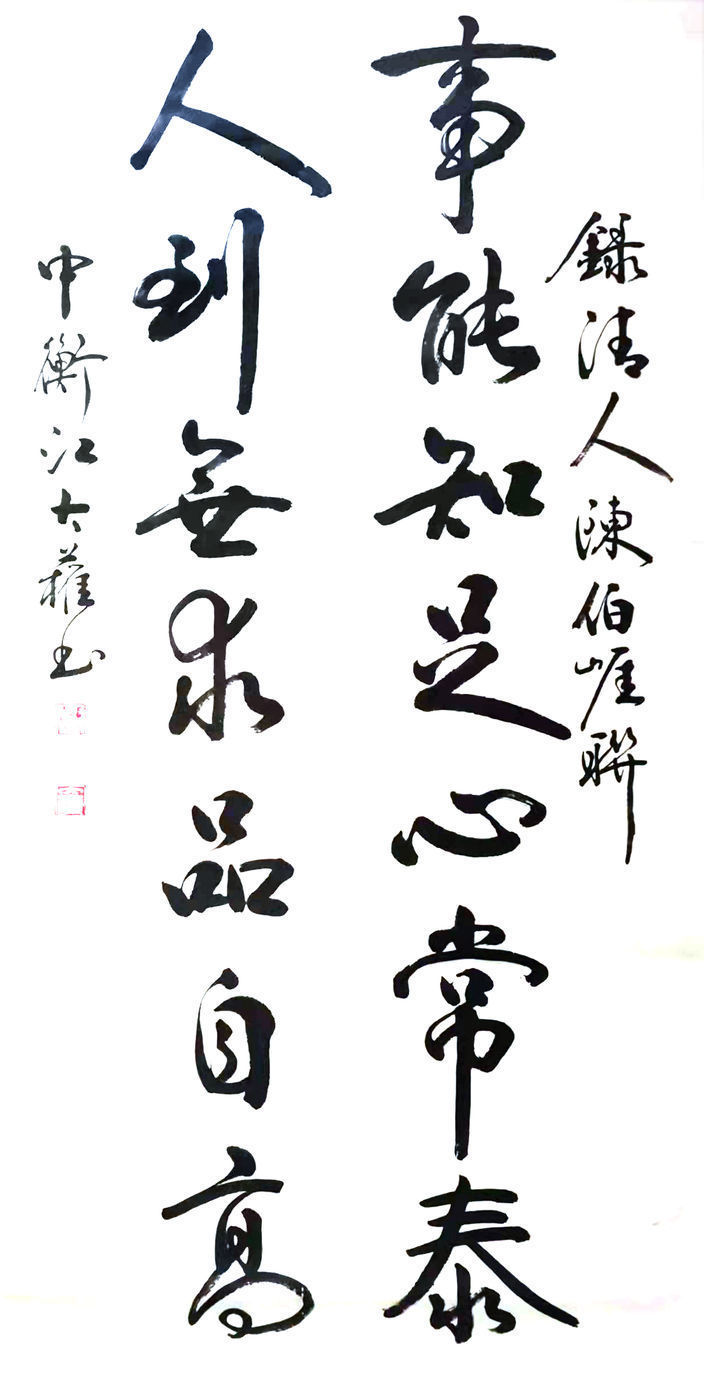 錄清人陳伯崖聯
事能知足心常泰
人到無求品自高
中衡江大權书